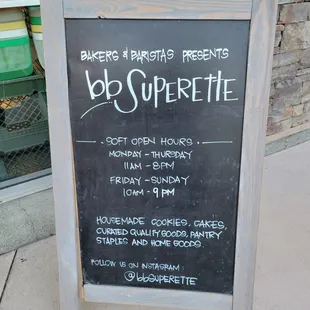 BAKERS & BARISTAS PRESENTS
bb SUPERETTE
SOFT OPEN HOURS
MONDAY - THURSDAY
11AM - 8PM
FRIDAY - SUNDAY
10AM - 9PM
HOUSEMADE COOKIES, CAKES,
CURATED QUALITY GOODS, PANTRY
STAPLES AND HOME GOODS.
FOLLOW US ON INSTAGRAM
@bbSUPERETTE